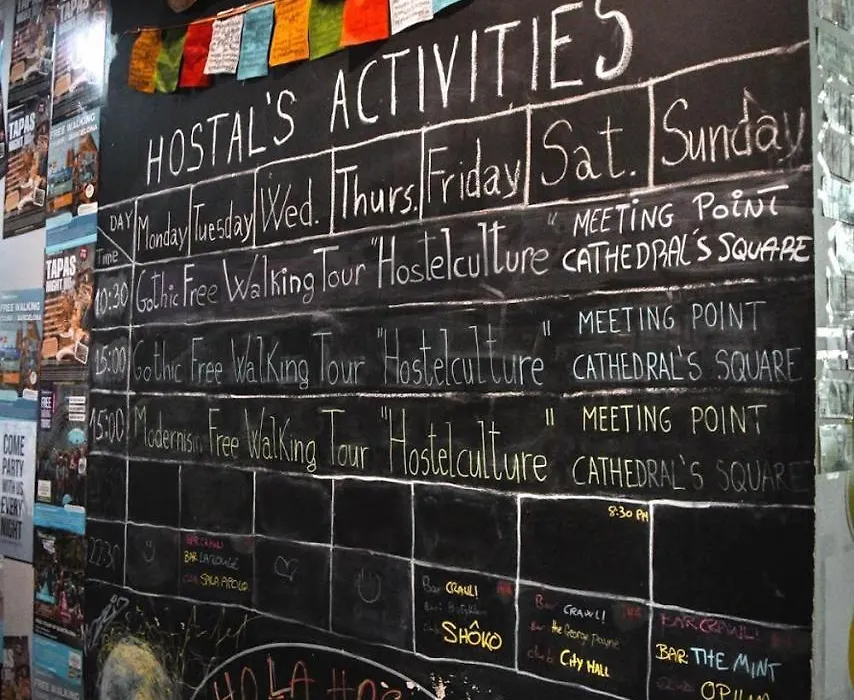 HOSTAL'S ACTIVITIES
DAY Time Monday Tuesday Wed. Thurs. Friday Sat. Sunday
10:30 Gothic Free Walking Tour "Hostelculture" MEETING POINT
CATHEDRAL'S SQUARE
15:00 Gothic Free Walking Tour "Hostelculture" MEETING POINT
CATHEDRAL'S SQUARE
15:00 Modernism Free Walking Tour "Hostelculture" MEETING POINT
CATHEDRAL'S SQUARE
8:30 PM
22:30
BAR CRAWL!
BAR
SALA APOLO
Bar CRAWL!
SHÔKO
Bar CRAWL!
Bar the George Payne
club: CITY HALL
BAR CRAWL!
BAR: THE MINT
HOLA
TAPAS
FREE WALKING
BARCELONA
TAPAS
FREE WALKING
COME
PARTY
WITH US
EVERY
NIGHT
FREE
FREE WALKING